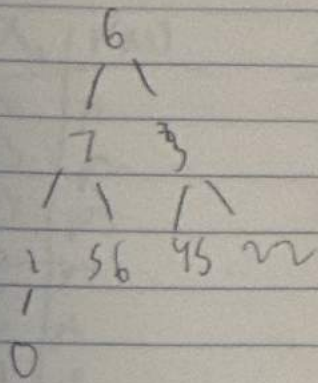 6
7 3
1 56 45 22
0